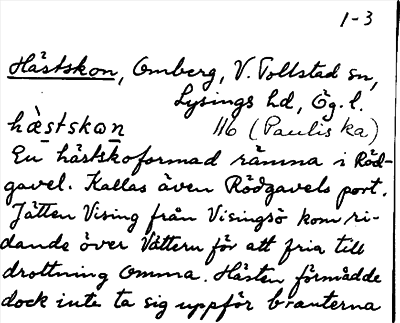 1-3
Hästskon, Omberg, V. Tollstad sn,
Lysings hd, Ög. l.
hæ̀stskɷn 116 (Paulis ka)
En hästskoformad rämna i Röd-
gavel. Kallas även Rödgavels port.
Jätten Vising från Visingsö kom ri-
dande över Vättern för att fria till
drottning Omma. Hästen förmådde
dock inte ta sig uppför branterna